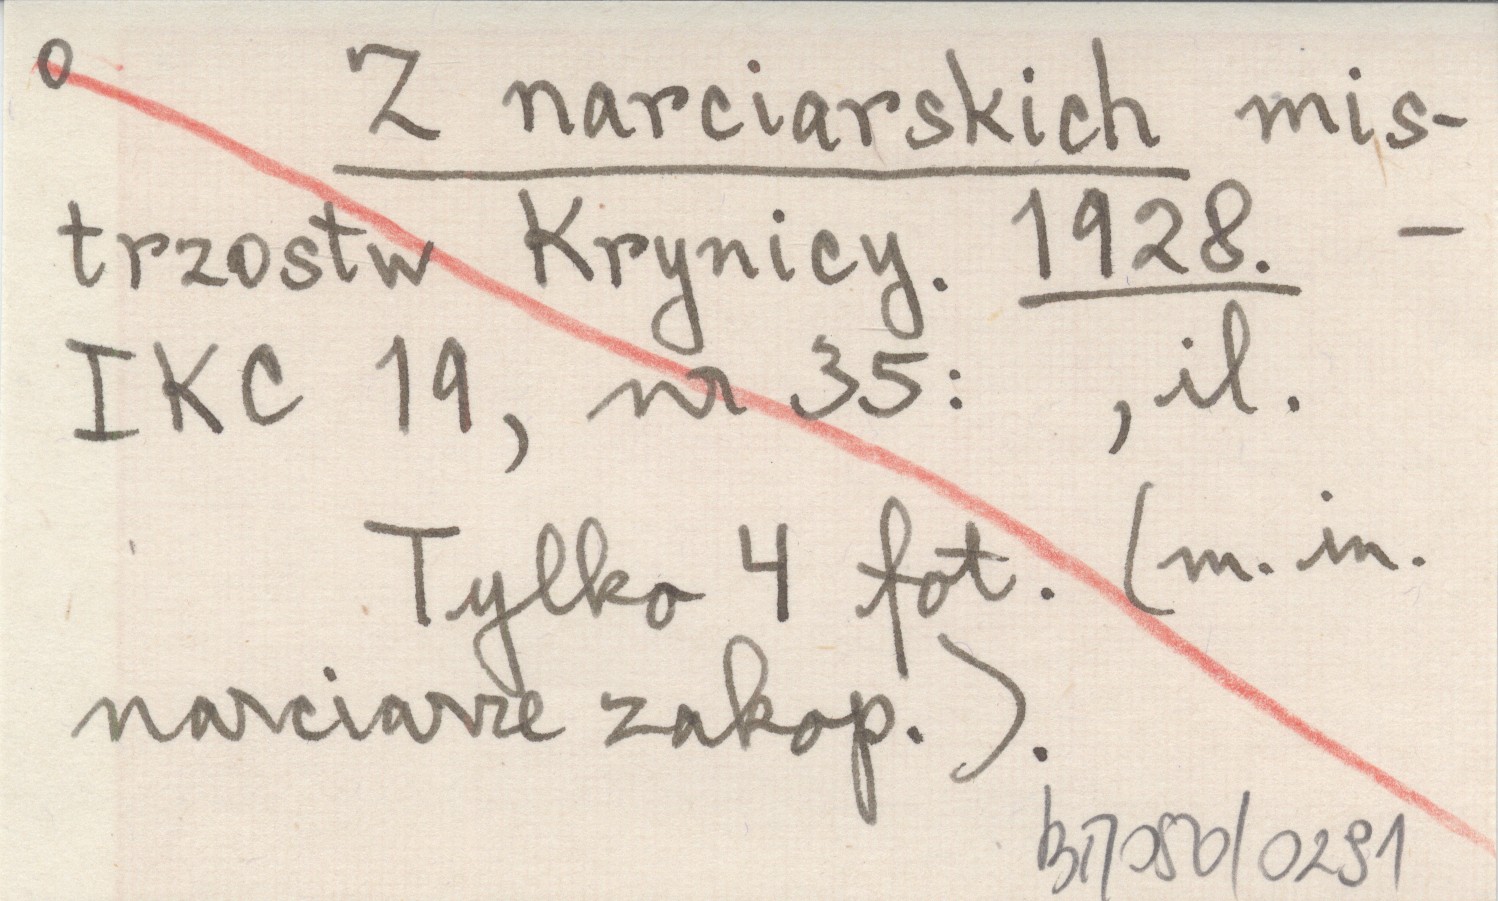 o Z narciarskich mis-
trzostw Krynicy. 1928. –
IKC 19, nr 35: , il.
Tylko 4 fot. (m. in.
narciarze zakop.).
0291